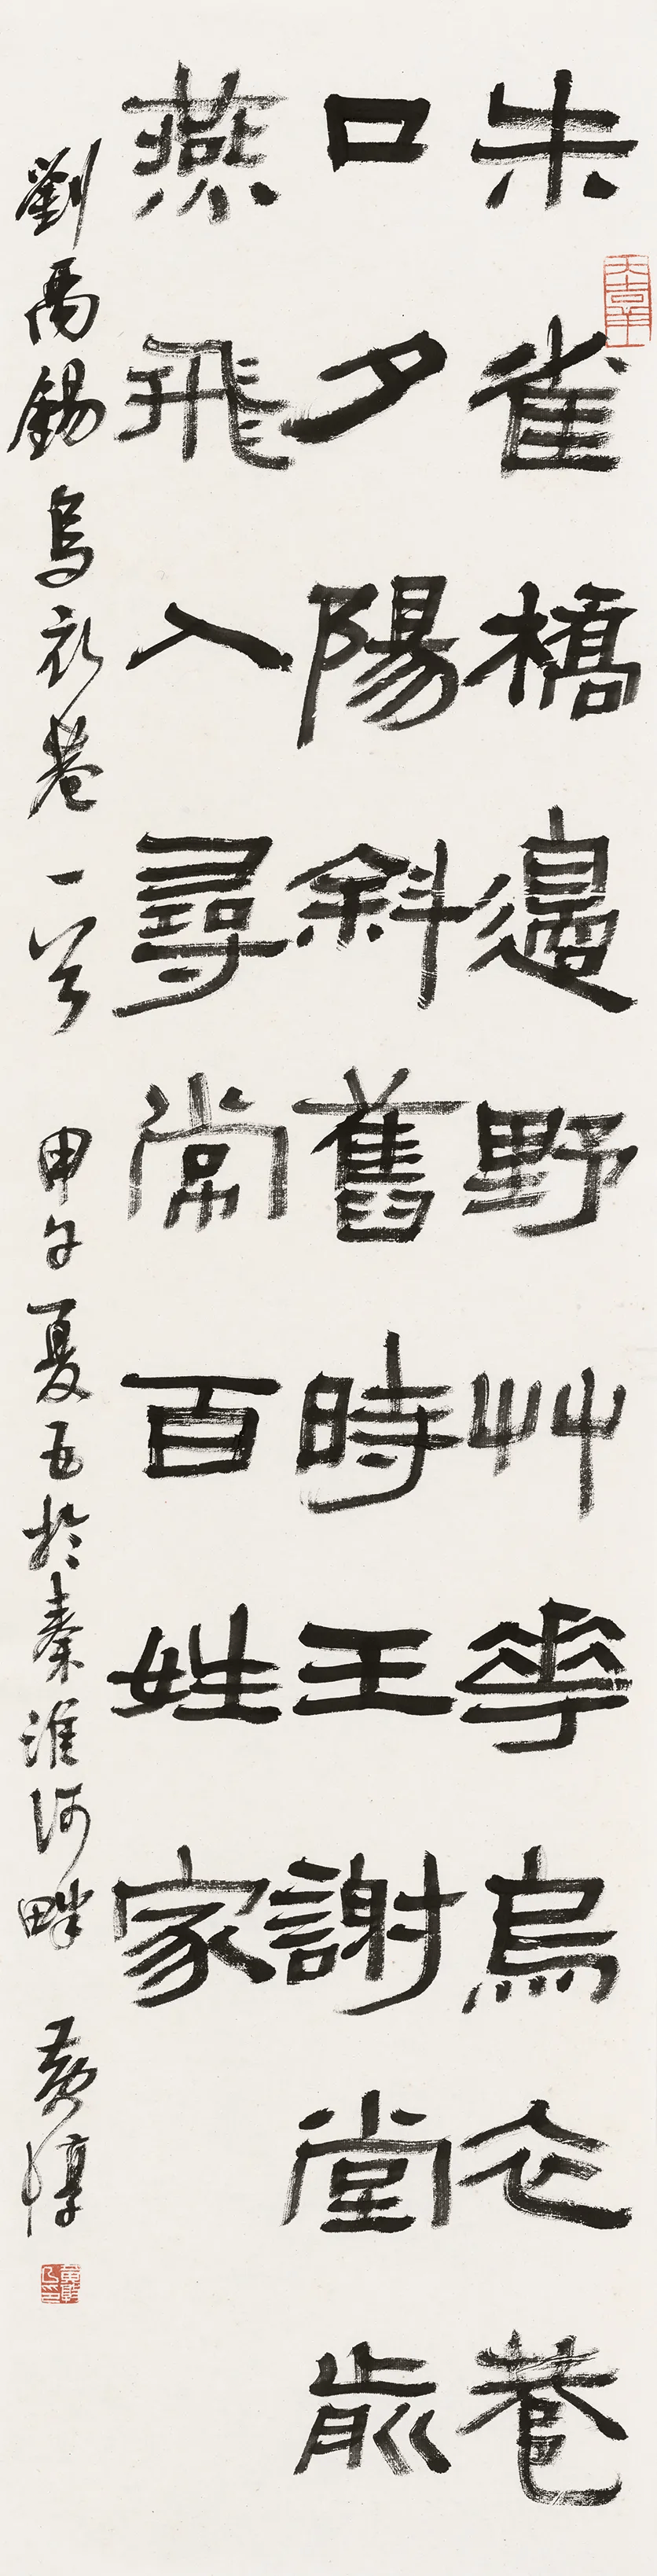 朱雀橋邊野艸花烏衣巷
口夕陽斜舊時王謝堂前
燕飛入尋常百姓家
劉禹錫烏衣巷一首 甲午夏五於秦淮河畔 黃惇